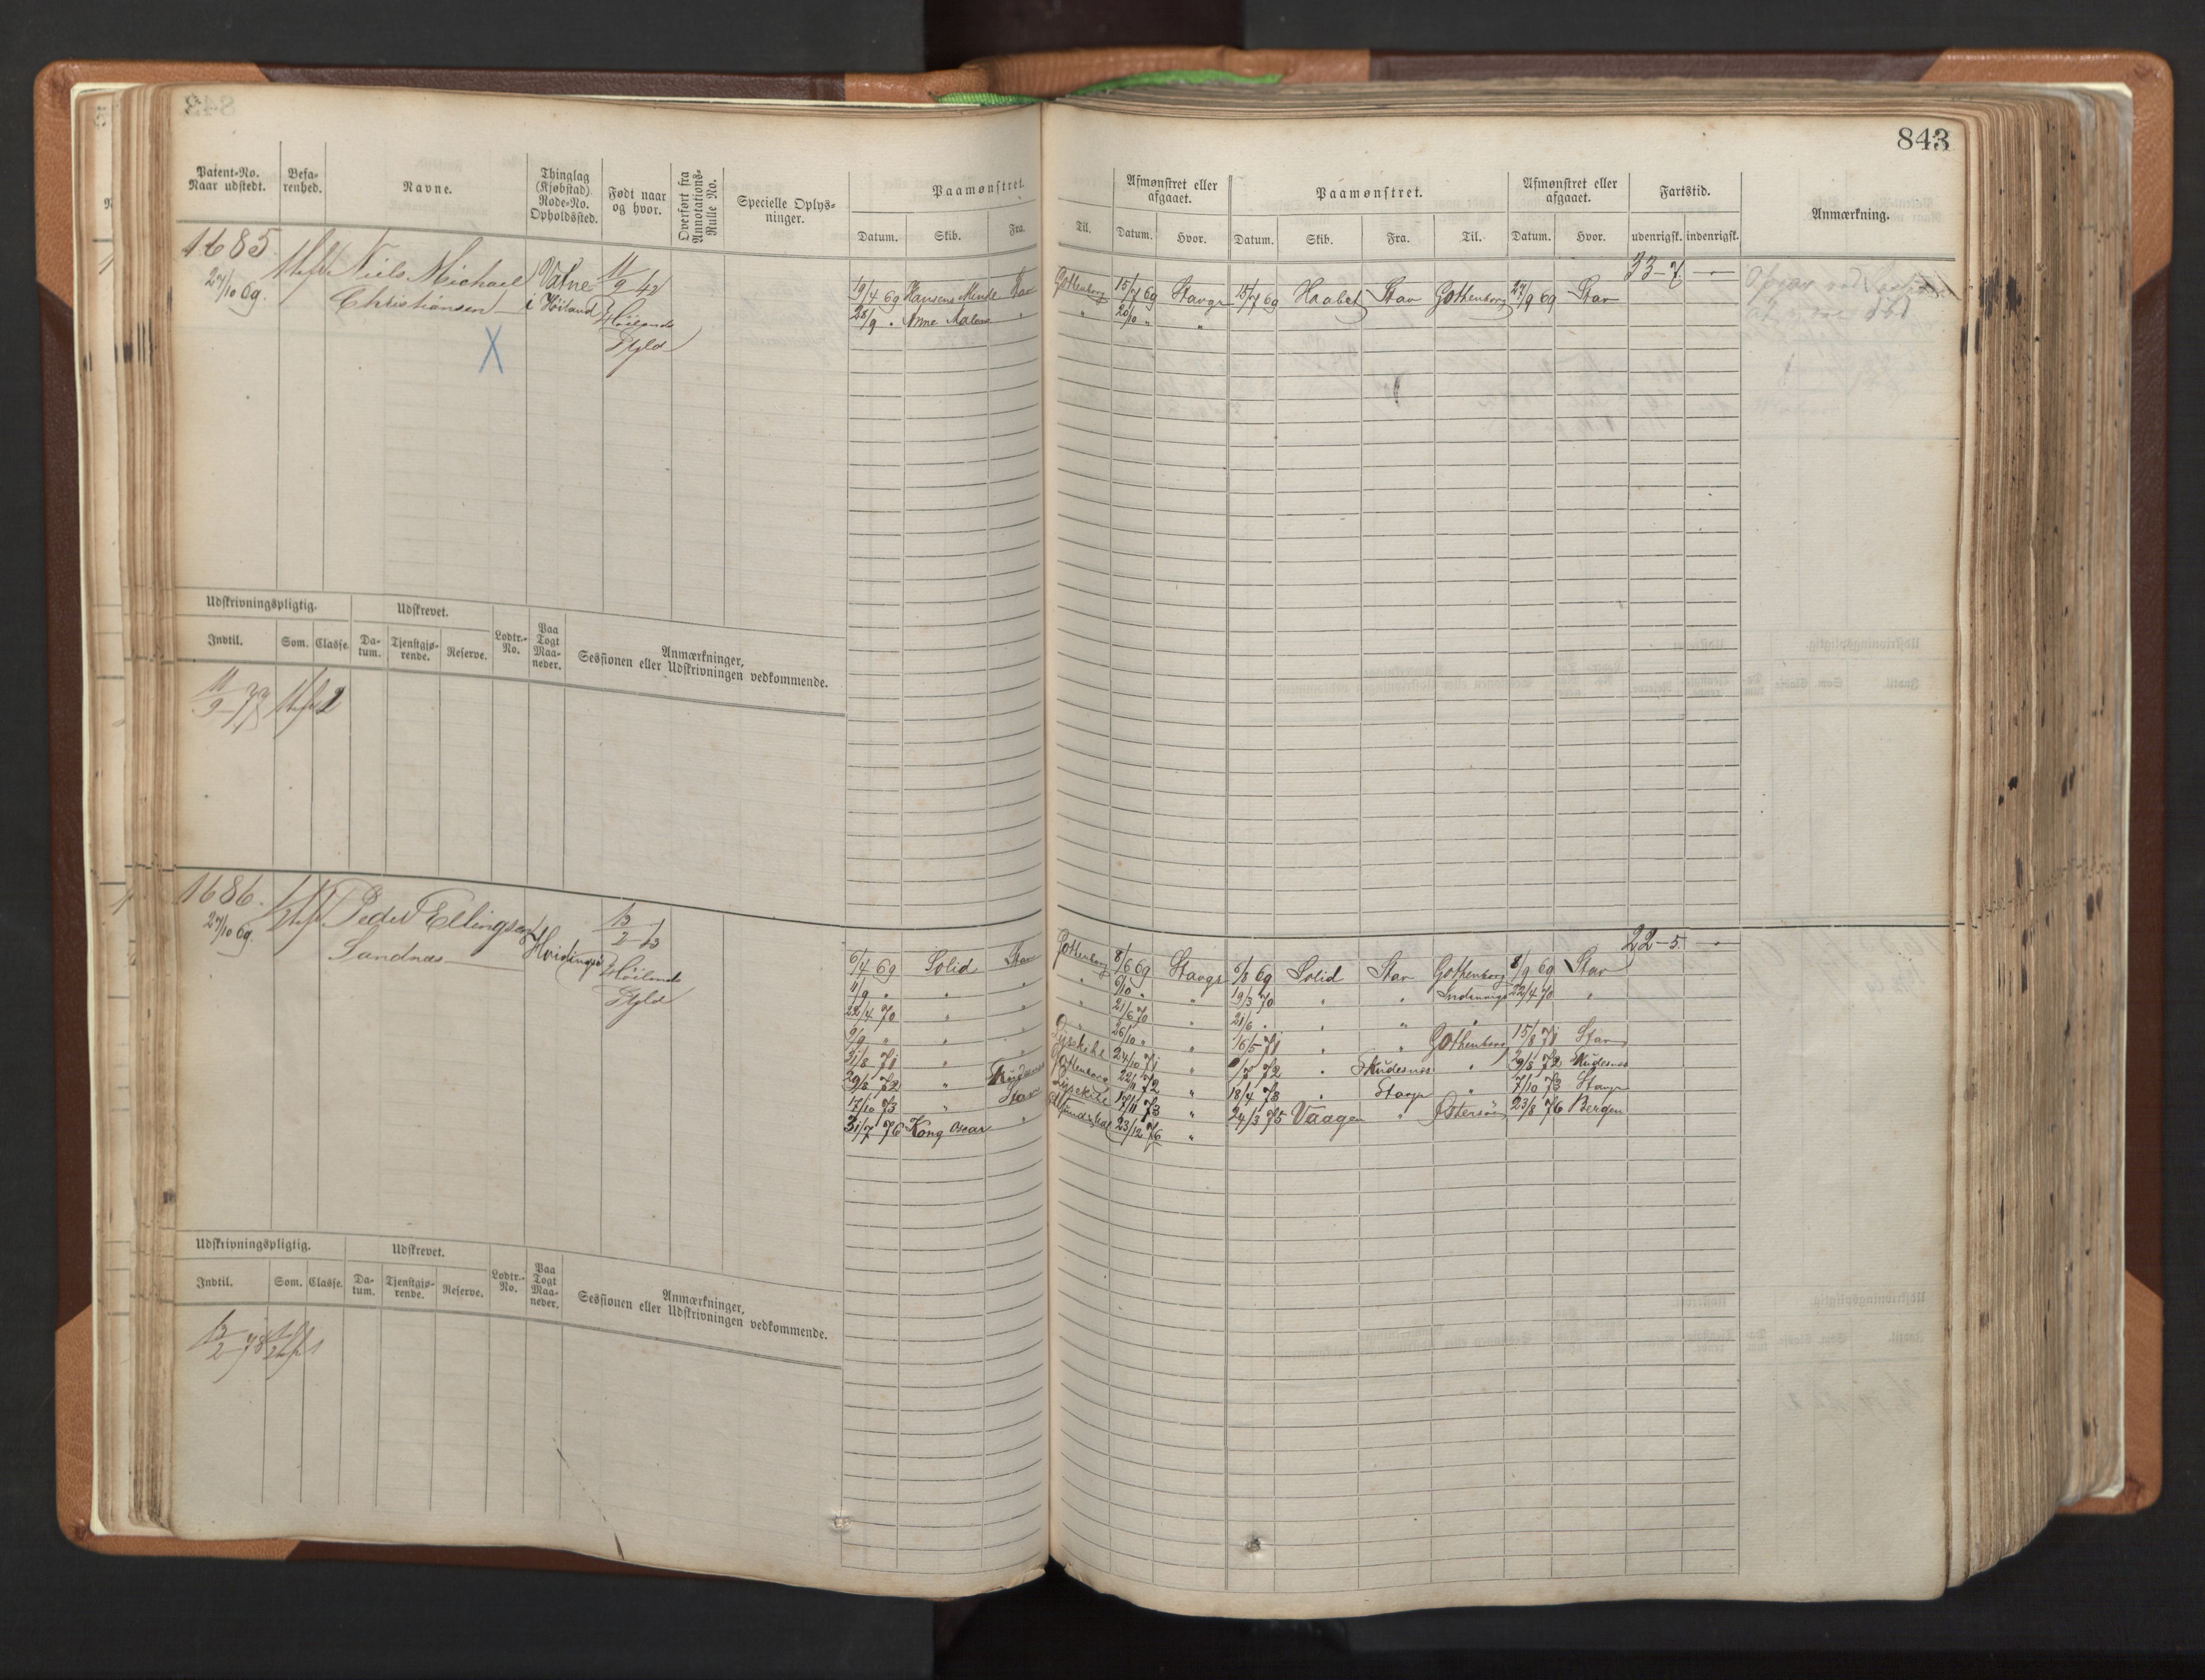 843
Patent-No. Naar udstedt.
Befa-renhed.
Navne.
Thinglag (Kjøbstad) Rode-No. Opholdssted.
Født naar og hvor.
Overført fra Annotations-Rulle No.
Specielle Oplys-ninger.
Paamønstret.
Datum. Skib. Fra. Til.
Afmønstret eller afgaaet.
Datum. Hvor.
Paamønstret.
Datum. Skib. Fra. Til.
Afmønstret eller afgaaet.
Datum. Hvor.
Fartstid.
udenrigsk. indenrigsk.
Anmærkning.
1685.
27/10 69.
Niels Michael
Christiansen
Vatne
i Høiland
11/9 42
Høilands
Stgld
X
33-7 -
19/4 69 Hansens Minde Stav Gottenborg 15/7 69 Stavgr 15/7 69 Haabet Stav Gothenborg 27/9 69 Stav
28/9 " Anne Malene " " 20/10 " "
Udskrivningspligtig.
Udskrevet.
Indtil. Som. Classe.
Da-tum. Tjenstgjø-rende. Reserve.
Lodtr.-No.
Paa Togt Maa-neder.
Anmærkninger, Sessionen eller Udskrivningen vedkommende.
11/9 77
2
1686.
27/10 69.
Peder Ellingsen
Sandnæs
Hvidingsø
13/2 43
Høilands
Stgld
22-5. -
6/4 69 Solid Stav Gottenborg 8/6 69 Stavgr 6/8 69 Solid Stav Gothenborg 8/9 69 Stav
11/9 " " " " 6/10 " " 19/3 70 " " 22/4 70 "
22/4 70 " " " 21/6 70 " 21/6 " " " "
9/9 " " " " 26/10 " " 16/5 71 " " Gothenborg 15/8 71 Stav
31/8 71 " " Lysekihl 24/10 71 " 72 " Skudesnes " 29/8 72 Skudesnes
29/8 72 " Skudesnes Gottenborg 22/11 72 " 18/4 73 " Stavgr " 7/10 73 Stavgr
17/10 73 " Stav Lysekihl 17/11 73 " 24/3 75 Vaagen " Østersøen 23/8 76 Bergen
31/7 76 Kong Oscar " 23/12 76 "
Udskrivningspligtig.
Udskrevet.
Indtil. Som. Classe.
Da-tum. Tjenstgjø-rende. Reserve.
Lodtr.-No.
Paa Togt Maa-neder.
Anmærkninger, Sessionen eller Udskrivningen vedkommende.
13/2 78
1